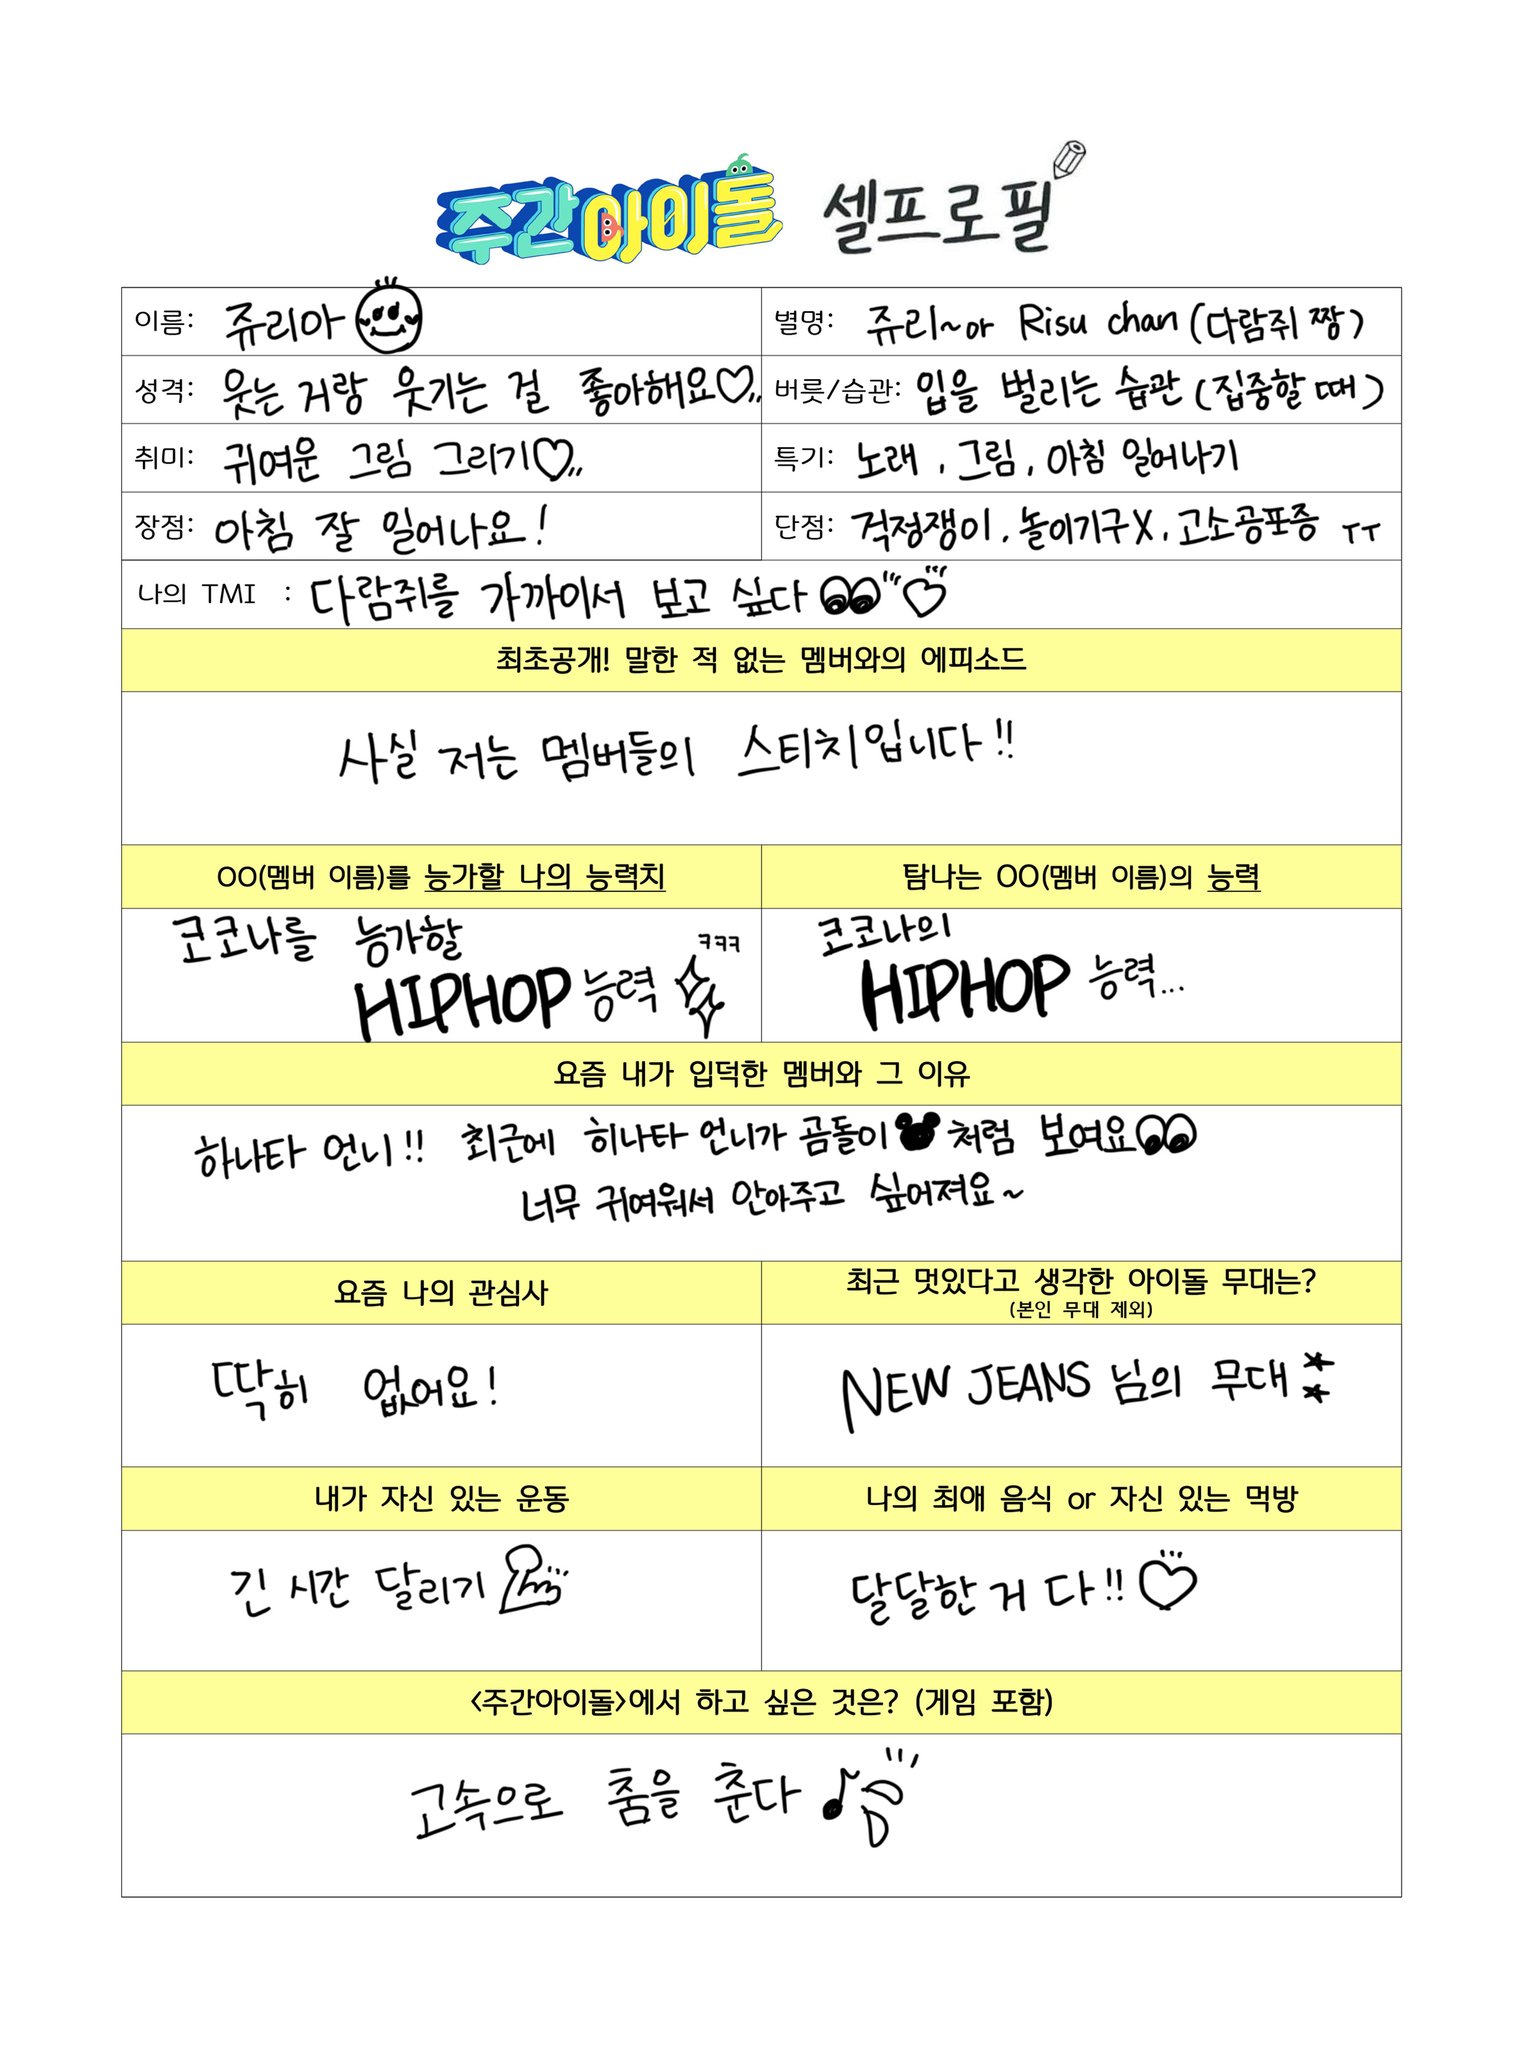 주간아이돌 셀프로필
이름: 쥬리아
별명: 쥬리~ or Risu chan (다람쥐 짱)
성격: 웃는 거랑 웃기는 걸 좋아해요♡
버릇/습관: 입을 벌리는 습관 (집중할 때)
취미: 귀여운 그림 그리기♡
특기: 노래, 그림, 아침 일어나기
장점: 아침 잘 일어나요!
단점: 걱정쟁이, 놀이기구X, 고소공포증 ㅜㅜ
나의 TMI : 다람쥐를 가까이서 보고 싶다
최초공개! 말한 적 없는 멤버와의 에피소드
사실 저는 멤버들의 스티치입니다!!
OO(멤버 이름)를 능가할 나의 능력치
코코나를 능가할
HIPHOP 능력 ㅋㅋㅋ
탐나는 OO(멤버 이름)의 능력
코코나의
HIPHOP 능력...
요즘 내가 입덕한 멤버와 그 이유
하나타 언니!! 최근에 히나타 언니가 곰돌이 처럼 보여요
너무 귀여워서 안아주고 싶어져요~
요즘 나의 관심사
딱히 없어요!
최근 멋있다고 생각한 아이돌 무대는?
(본인 무대 제외)
NEW JEANS 님의 무대
내가 자신 있는 운동
긴 시간 달리기
나의 최애 음식 or 자신 있는 먹방
달달한 거 다!!
<주간아이돌>에서 하고 싶은 것은? (게임 포함)
고속으로 춤을 춘다